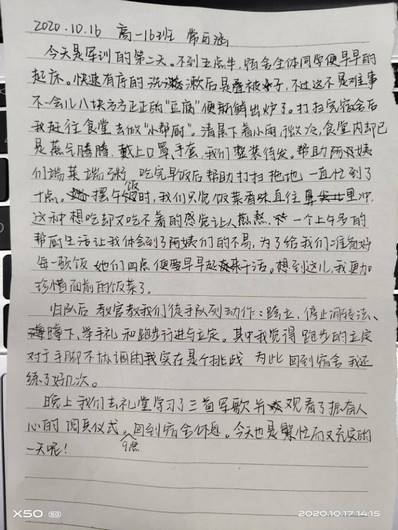 2020.10.16 高一16班
今天是军训的第二天。不到五点半,宿舍全体同学便早早的
起床。快速有序的洗漱后是叠被子,不过这不是难事
不一会儿八块方方正正的“豆腐”便新鲜出炉了。打扫完宿舍后
我赶往食堂去做“小帮厨”。清晨下着小雨,微凉,食堂内却已
是蒸气腾腾,戴上口罩、手套,我们整装待发。帮助阿姨
们端菜、端粥,吃完早饭后帮助打扫拖地,一直忙到了
十点。摆午饭时,我们只觉饭菜香味直往鼻尖里冲,
这种想吃却又吃不着的感觉让人煎熬,一个上午多的
帮厨生活让我体会到了阿姨们的不易,为了给我们准备好
每一顿饭她们四点便要早早起来干活。想到这儿,我更加
珍惜面前的饭菜了。
归队后教官教我们徒手队列动作:跨立、停止间转法、
蹲下、举手礼和跑步行进与立定。其中我觉得跑步的立定
对于手脚不协调的我实在是个挑战 为此回到宿舍我还
练了好几次。
晚上我们去礼堂学习了三首军歌并观看了振奋人
心的阅兵仪式。9点回到宿舍休息。今天也是繁忙而又充实的
一天呢!
X50
2020.10.17 14:15